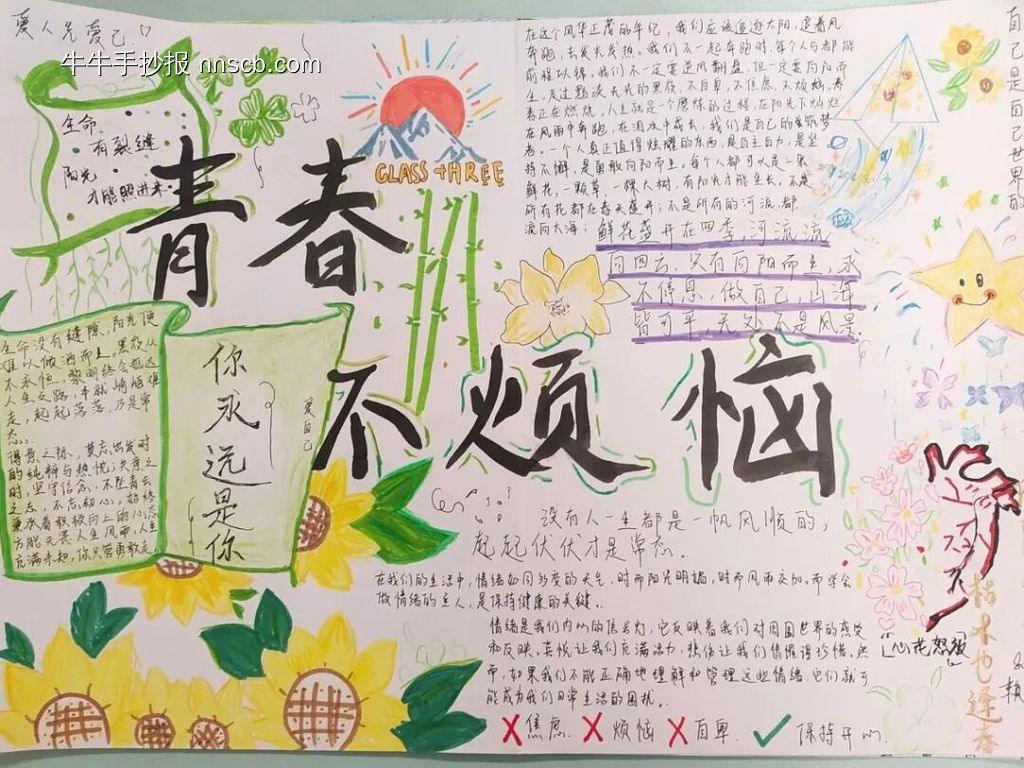 爱人先爱己
牛牛手抄报 nnscb.com
生命
有裂缝
阳光
才能照进来
青春
CLASS THREE
不烦恼
在这个风华正茂的年纪，我们应该追逐太阳，迎着风
奔跑，去发光发热。我们不一起奔跑时，每个人都能
前程似锦，我们不一定要逆风翻盘，但一定要向阳而
生，
不自卑，不焦虑，不放弃，青
春正在燃烧，人生就是一个磨炼的过程，在阳光下灿烂
在风雨中奔跑，在泪水中成长，我们是自己的
者。一个人真正值得炫耀的东西，是自主自力，是坚
持不懈，是勇敢向阳而生，每个人都可以是一朵
鲜花，一颗草，一棵大树，有阳光才能生长。不是
所有花都在春天盛开；不是所有的河流，都
流向大海；鲜花盛开在四季，河流流
向四方，只有向阳而生，永
不停息，做自己，山海
皆可平，无处不是风景。
生命没有缝隙，阳光便
难以做洒而上。黑夜从
不永恒，黎明终会抵达
人生之路，本就崎岖难
走，起起落落，乃是常
态。
得意之际，莫忘出发时
的纯粹与热忱；失意之
时，坚守信念，不坠青云
之志，不忘初心，始终
秉承着积极向上的心态
方能无畏人生风雨，人生
充满未知，你只管勇敢走
你永远是你
爱自己
没有人一生都是一帆风顺的，
起起伏伏才是常态。
在我们的生活中，情绪如同多变的天气，时而阳光明媚，时而风雨交加。而学会
做情绪的主人，是保持健康的关键。
情绪是我们内心的信号灯，它反映着我们对周围世界的感受
和反映。喜悦让我们充满活力，悲伤让我们懂得珍惜。然
而，如果我们不能正确地理解和管理这些情绪，它们就可
能成为我们日常生活的困扰。
焦虑. 烦恼 自卑. 保持开心.
自己是自己世界的
「心花怒放」
枯木也逢春